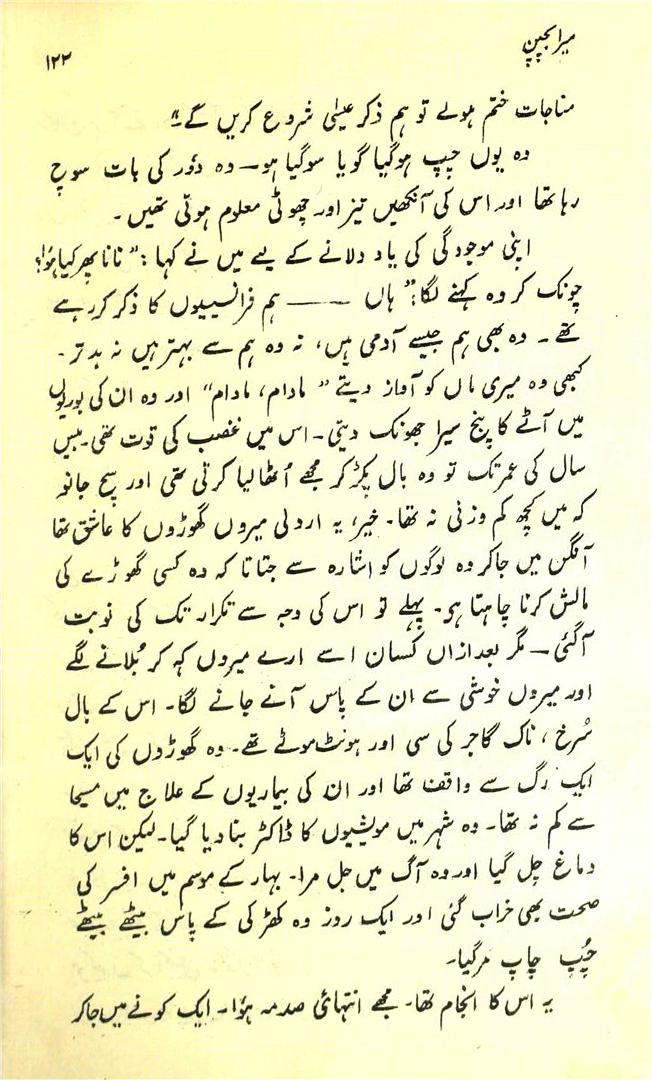 میرا بچپن
۱۲۲
مناجات ختم ہولے تو ہم ذکر عیسیٰ شروع کریں گے۔"
وہ یوں چپ ہوگیا گویا سوگیا ہو۔ وہ دُور کی بات سوچ
رہا تھا اور اس کی آنکھیں تیز اور چھوٹی معلوم ہوتی تھیں۔
اپنی موجودگی کی یاد دلانے کے لیے میں نے کہا: "نانا پھر کیا ہوُا؟
چونک کر وہ کہنے لگا: "ہاں ــــــ ہم فرانسیسیوں کا ذکر کررہے
تھے۔ وہ بھی ہم جیسے آدمی ہیں، نہ وہ ہم سے بہتر ہیں نہ بدتر۔
کبھی وہ میری ماں کو آواز دیتے "مادام، مادام" اور وہ ان کی بوریوں
میں آٹے کا پنج سیرا جھونک دیتی۔ اس میں غضب کی قوت تھی۔ بیس
سال کی عمر تک تو وہ بال پکڑ کر مجھے اُٹھالیا کرتی تھی اور سچ جانو
کہ میں کچھ کم وزنی نہ تھا۔ خیر، یہ اردلی میروں گھوڑوں کا عاشق تھا
آنگن میں جاکر وہ لوگوں کو اشارہ سے جتاتا کہ وہ کسی گھوڑے کی
مالش کرنا چاہتا ہو۔ پہلے تو اس کی وجہ سے تکرار تک کی نوبت
آگئی۔ مگر بعدازاں کسان اسے ارے میروں کہہ کر بُلانے لگے
اور میروں خوشی سے ان کے پاس آنے جانے لگا۔ اس کے بال
سُرخ، ناک گاجر کی سی اور ہونٹ موٹے تھے۔ وہ گھوڑوں کی ایک
ایک رگ سے واقف تھا اور ان کی بیماریوں کے علاج میں مسیحا
سے کم نہ تھا۔ وہ شہر میں مویشیوں کا ڈاکٹر بنا دیا گیا۔ لیکن اس کا
دماغ چل گیا اور وہ آگ میں جل مرا۔ بہار کے موسم میں افسر کی
صحت بھی خراب گئی اور ایک روز وہ کھڑکی کے پاس بیٹھے بیٹھے
چُپ چاپ مرگیا۔
یہ اس کا انجام تھا۔ مجھے انتہائی صدمہ ہوُا۔ ایک کونے میں جاکر